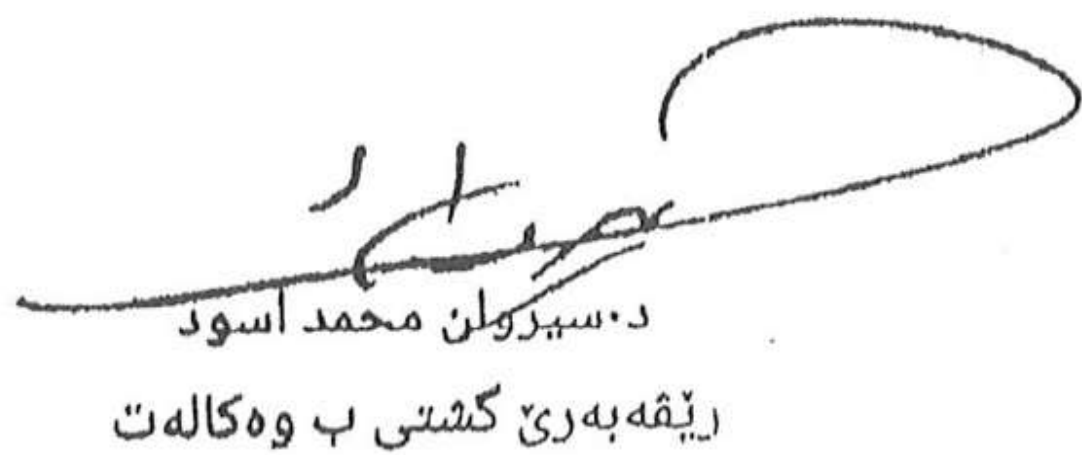 د.سیروان محمد اسود
رێڤەبەرێ گشتی ب وەکالەت